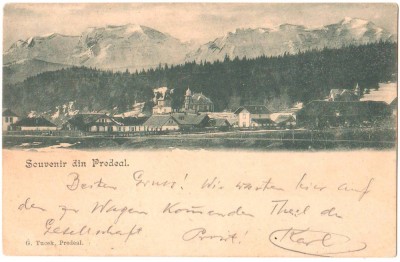 Souvenir din Predeal.
Besten Gruss! Wir warten hier auf
den zu Wagen kommenden Theil der
Gesellschaft Prosit! Karl
G. Turek, Predeal.